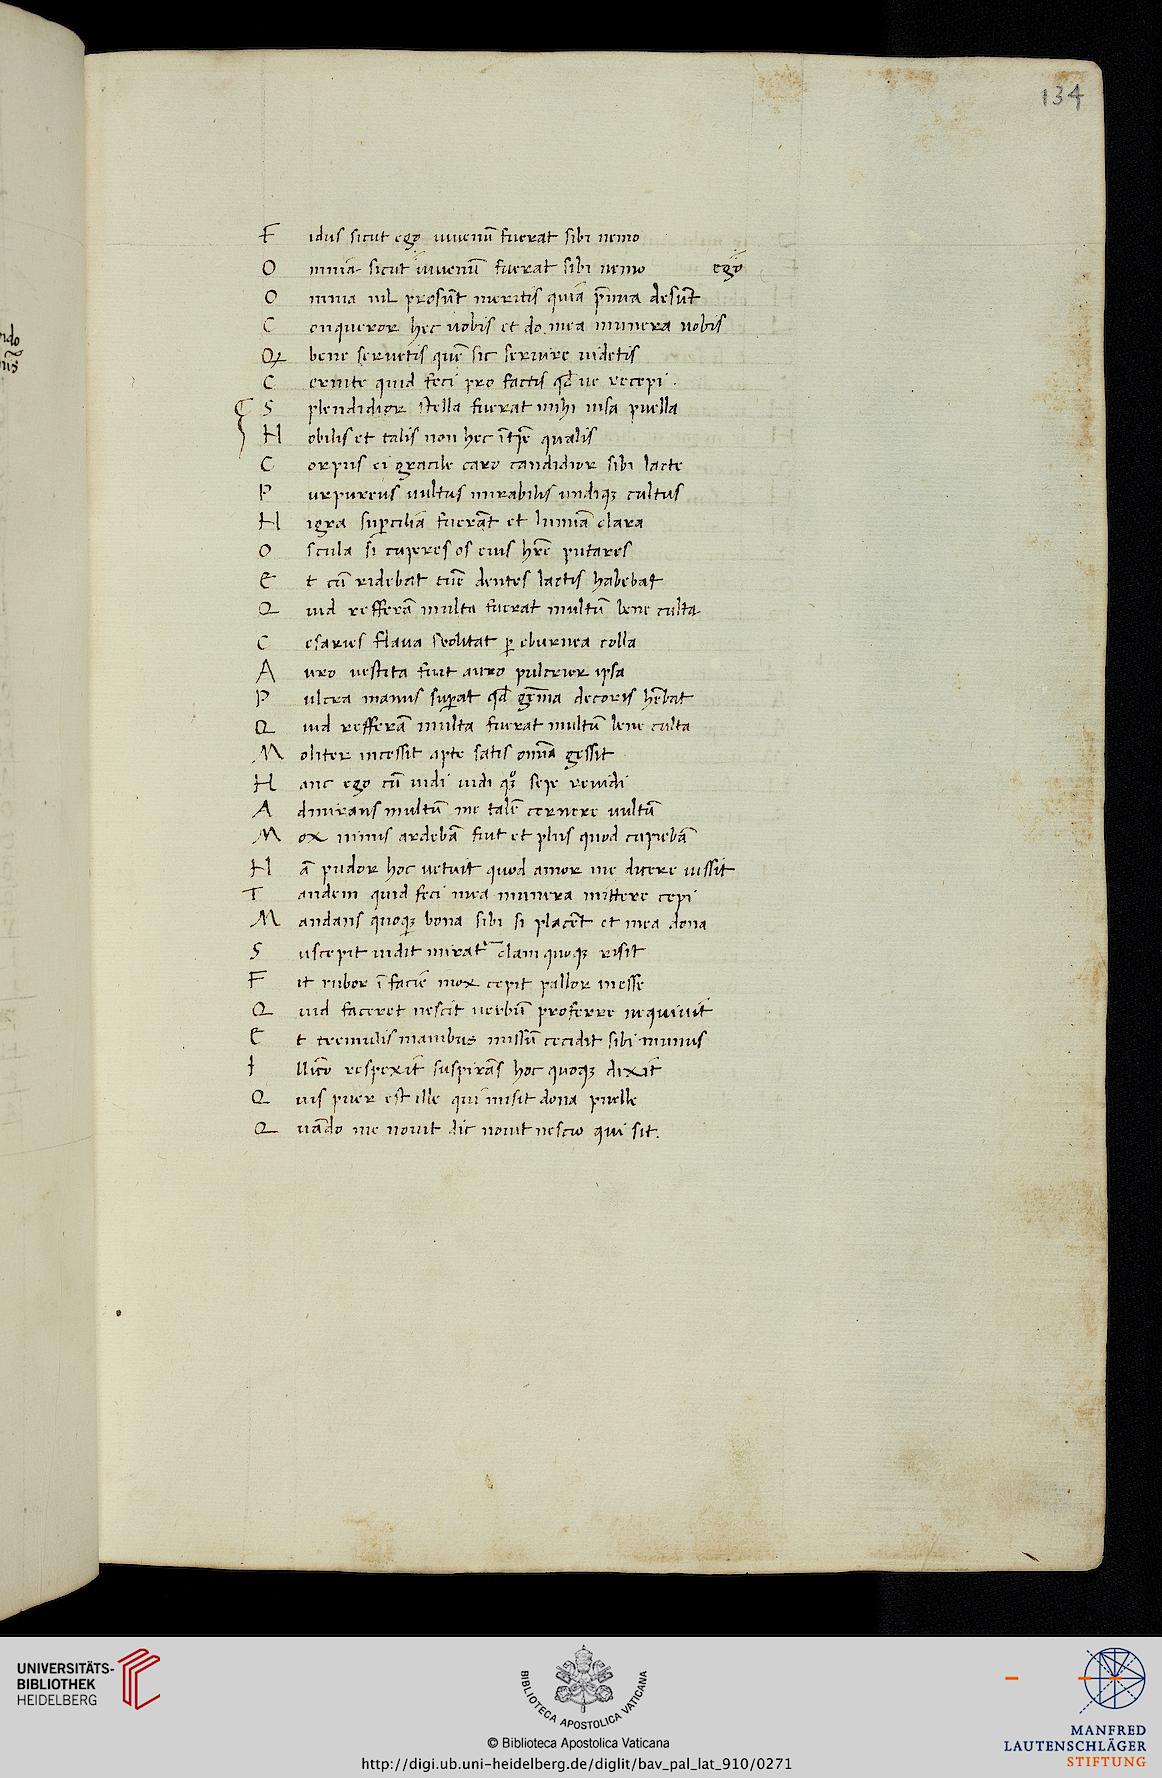 134
F idus sicut ego iuuenū fuerat sibi nemo
O mnia sicut iuuenū fuerat sibi nemo ego
O mnia nil prosūt meritis quia p̄mia desūt
C onqueror hec uobis et do mea munera uobis
Q bene seruetis quē sic seruire uidetis
C ernite quid feci pro factis qd̄ ue recepi .
S plendidior stella fuerat mihi uisa puella
N obilis et talis non hec īt̄q̄ē qualis
C orpus ei gracile caro candidior sibi lacte
P urpureus uultus mirabilis undiqꝫ cultus
N igra supcilia fuerāt et lumīa clara
O scula si cuperes os eius hr̄e putares
E t cū ridebat tūc dentes lactis habebat
Q uid refferā multa fuerat multū bene culta
C esaries flaua seolitat ꝑ eburnea colla
A uro uestita fuit auro pulcrior ipsa
P ulcra manus supat qd̄ gēma decoris hēbat
Q uid refferā multa fuerat multū bene culta
M oliter incessit apte satis omīa gessit
H anc ego cū uidi uidi qꝫ sepe reuidi
A dmirans multū me talē cernere uultū
M ox minus ardebā fuit et plus quod cupiebā
N ā pudor hoc uetuit quod amor me dicere iussit
T andem quid feci mea munera mittere cepi
M andans quoqꝫ bona sibi si placēt et mea dona
S uscepit uidit mirat̄ clam quoqꝫ risit
F it rubor ī faciē mox cepit pallor inesse
Q uid faceret nescit uerbū proferre nequiuit
E t tremulis manibus missū cecidit sibi munus
I llico respexit suspirās hoc quoqꝫ dixit
Q uis puer est ille qui misit dona puelle
Q uādo me nouit dic nouit nescio qui sit.
UNIVERSITÄTS-
BIBLIOTHEK
HEIDELBERG
BIBLIOTECA APOSTOLICA VATICANA
© Biblioteca Apostolica Vaticana
http://digi.ub.uni-heidelberg.de/diglit/bav_pal_lat_910/0271
MANFRED
LAUTENSCHLÄGER
STIFTUNG